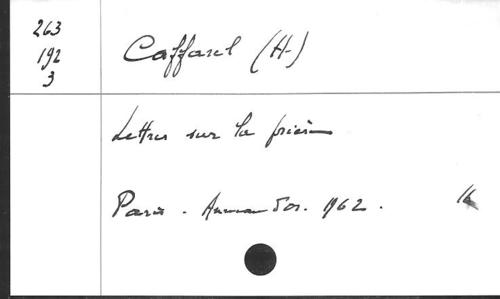 263
192
3
Caffarel (H-)
Lettres sur la prière
Paris. Anneau d'or. 1962.
16